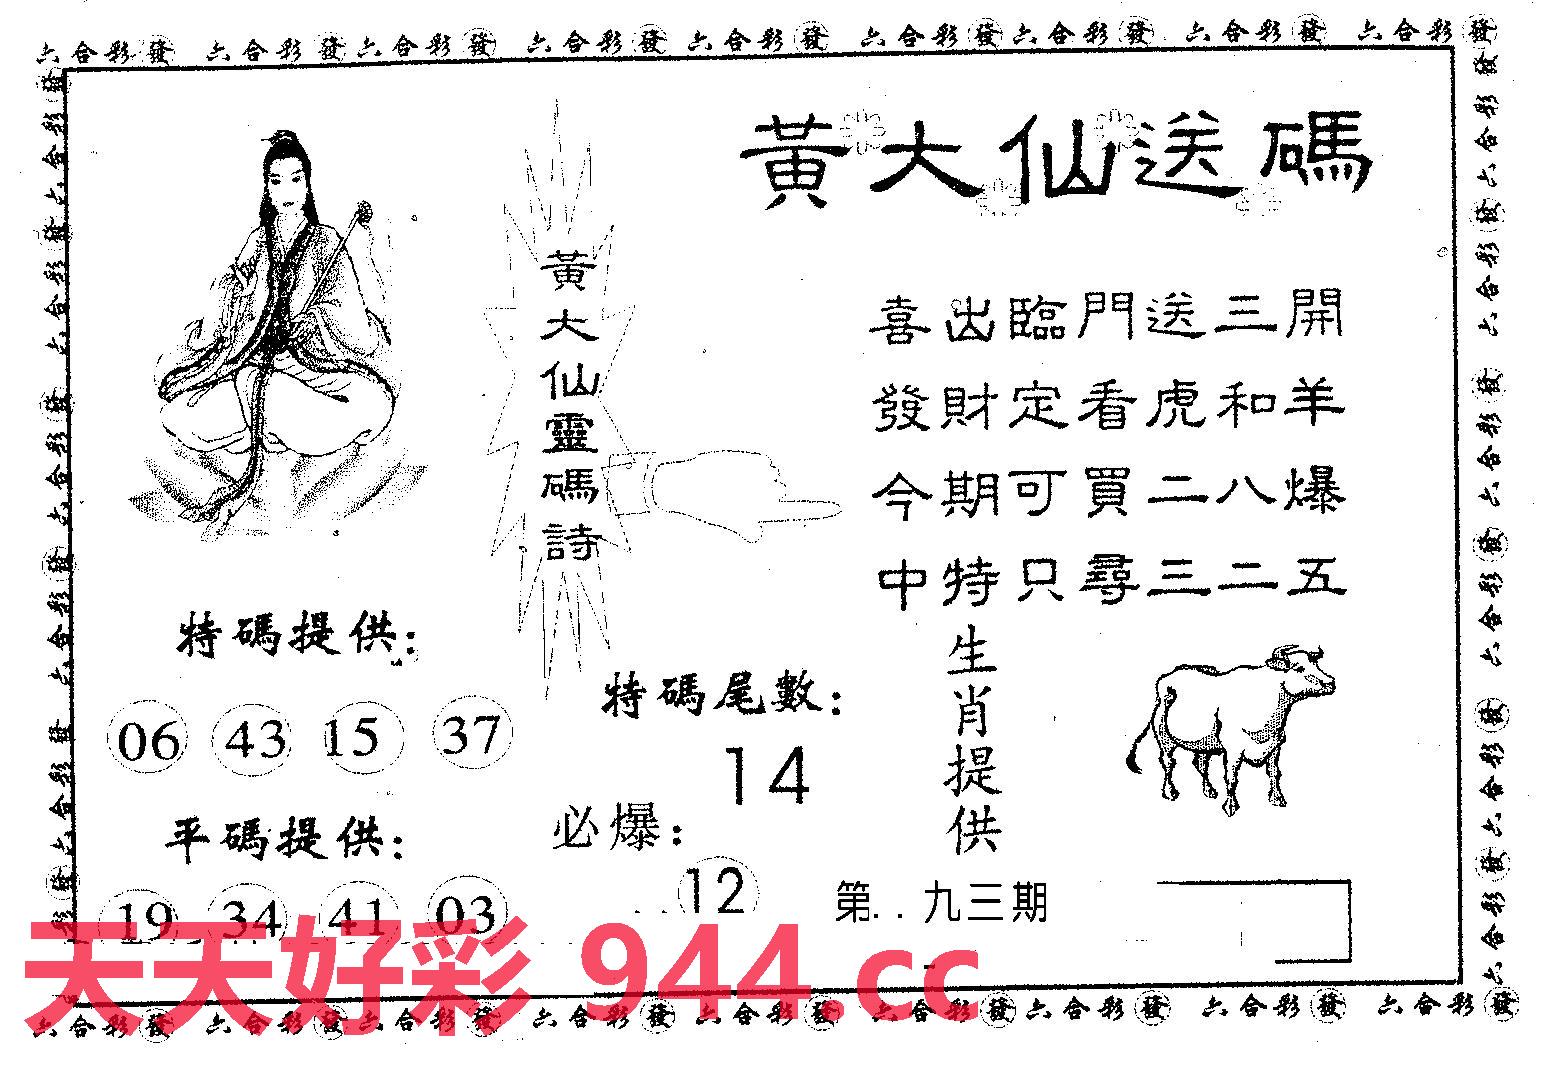 六合彩發 六合彩發 六合彩發 六合彩發 六合彩發 六合彩發 六合彩發 六合彩發 六合彩發
黃大仙送碼
黃大仙靈碼詩
喜出臨門送三開
發財定看虎和羊
今期可買二八爆
中特只尋三二五
特碼提供:
06 43 15 37
平碼提供:
19 34 41 03
特碼尾數:
14
必爆:
12
生肖提供
第..九三期
天天好彩 944.cc
六合彩發 六合彩發 六合彩發 六合彩發 六合彩發 六合彩發 六合彩發 六合彩發 六合彩發